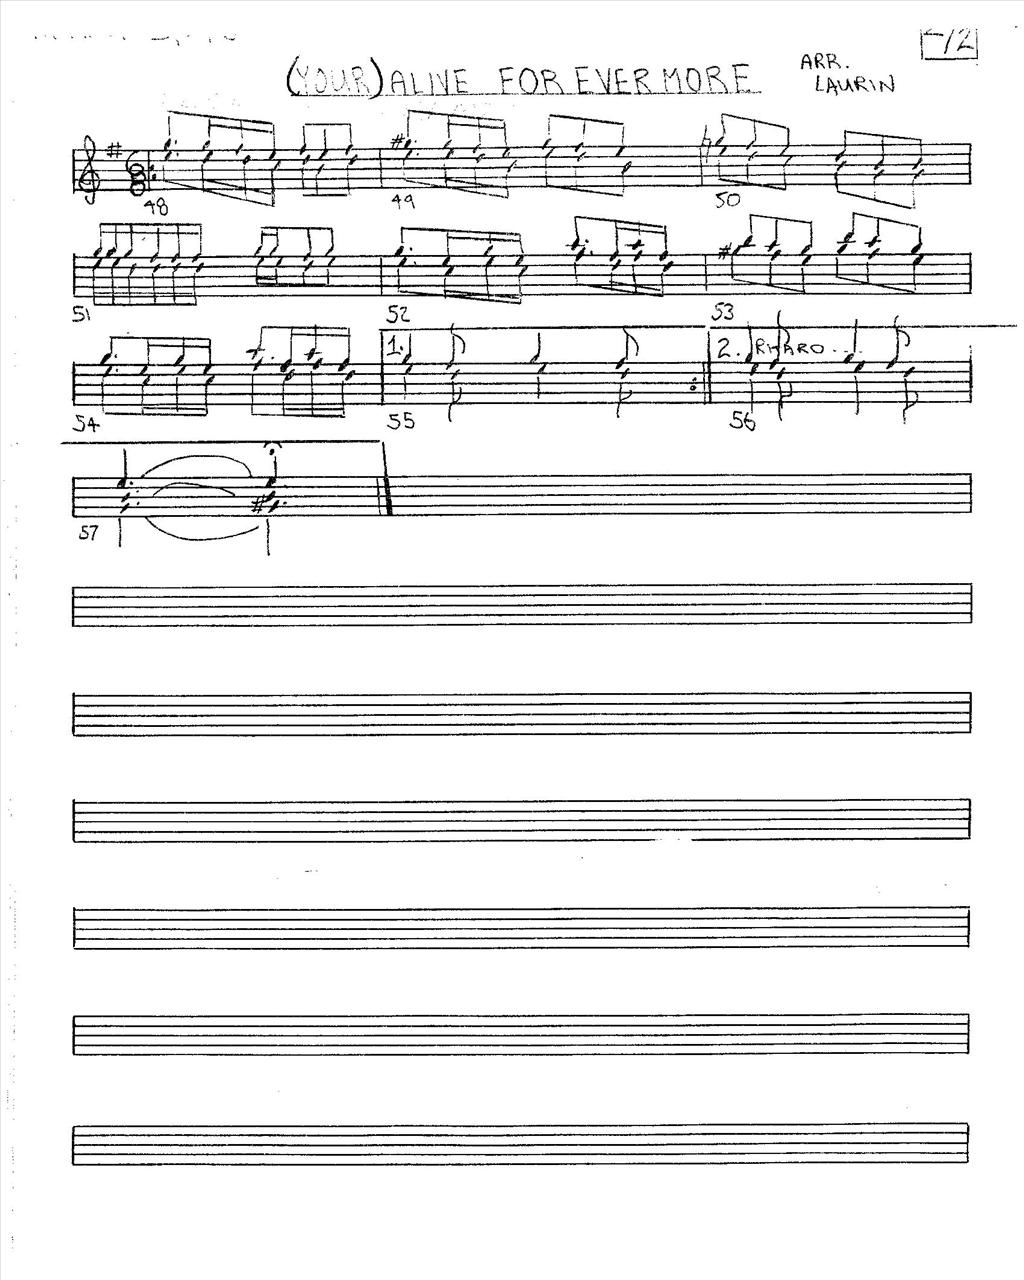 -12
(YOUR) ALIVE FOR EVER MORE
ARR.
LAURIN
6
8
48 49 50
51 52 53
1. 2. RITARD...
54 55 56
57